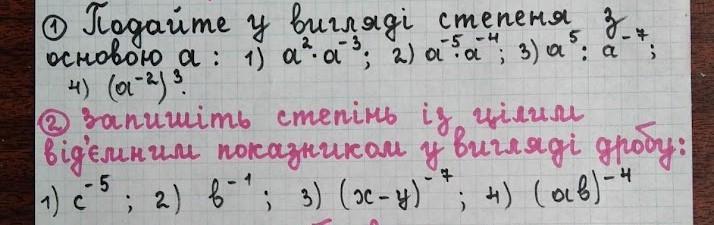 ① Подайте у вигляді степеня з
основою a : 1) a²·a⁻³; 2) a⁻⁵·a⁻⁴; 3) a⁵ : a⁻⁷;
4) (a⁻²)³.
② Запишіть степінь із цілим
від'ємним показником у вигляді дробу:
1) c⁻⁵ ; 2) b⁻¹ ; 3) (x-y)⁻⁷ ; 4) (ab)⁻⁴